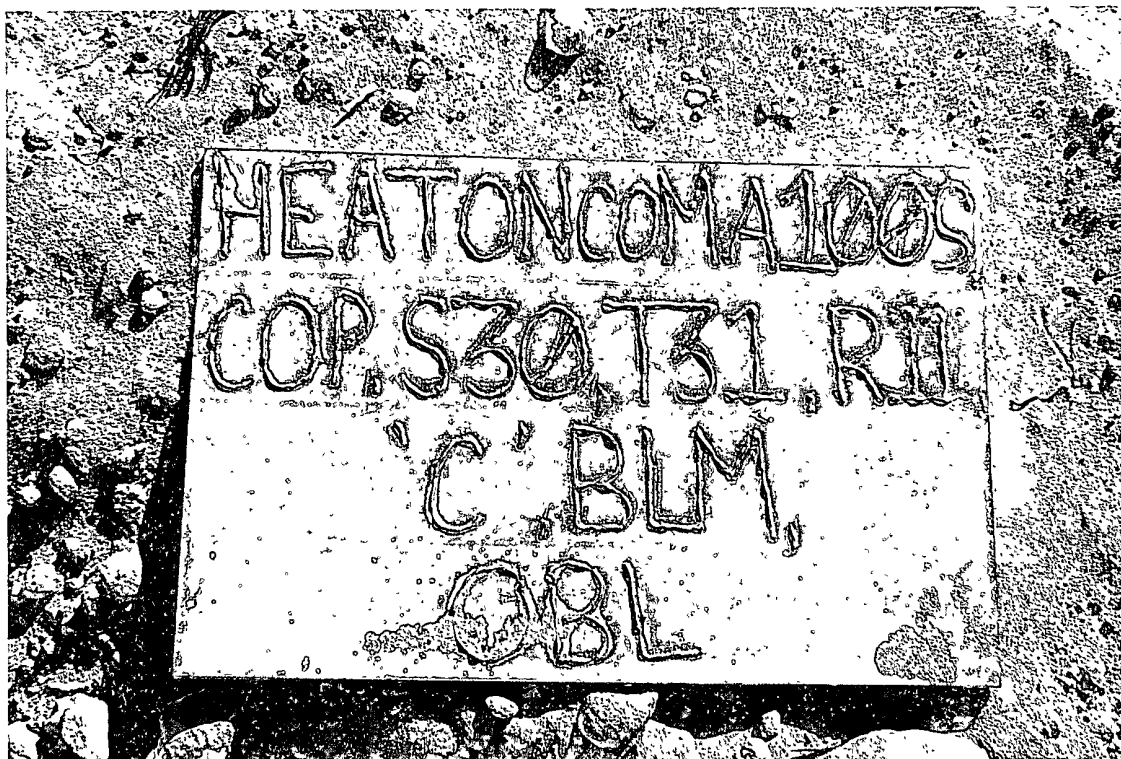 HEATON COMA 100S
COP, S30, T31, R11
'C', BLM,
OBL